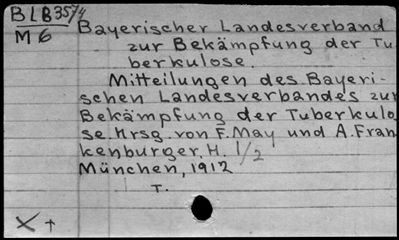 BLB3574
M6
Bayerischer Landesverband
zur Bekämpfung der Tu
berkulose.
Mitteilungen des Bayeri-
schen Landesverbandes zur
Bekämpfung der Tuberkulo
se. Hrsg. von F. May und A. Fran
kenburger. H. 1/2
München, 1912
T.
X ↑